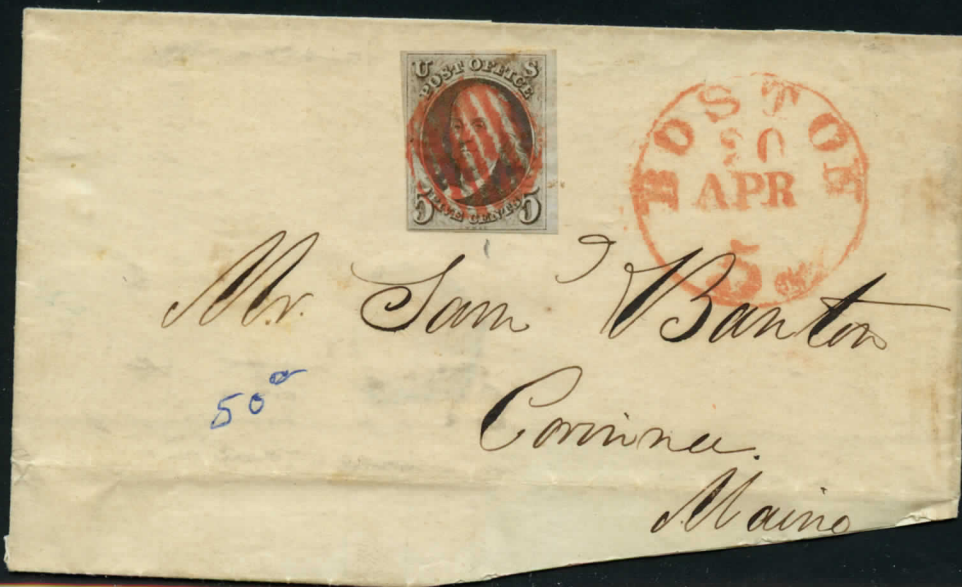 U S
POST OFFICE
FIVE CENTS
5 5
BOSTON
20
APR
5 cts
Mr. Sam Banton
50
Corinna.
Maine